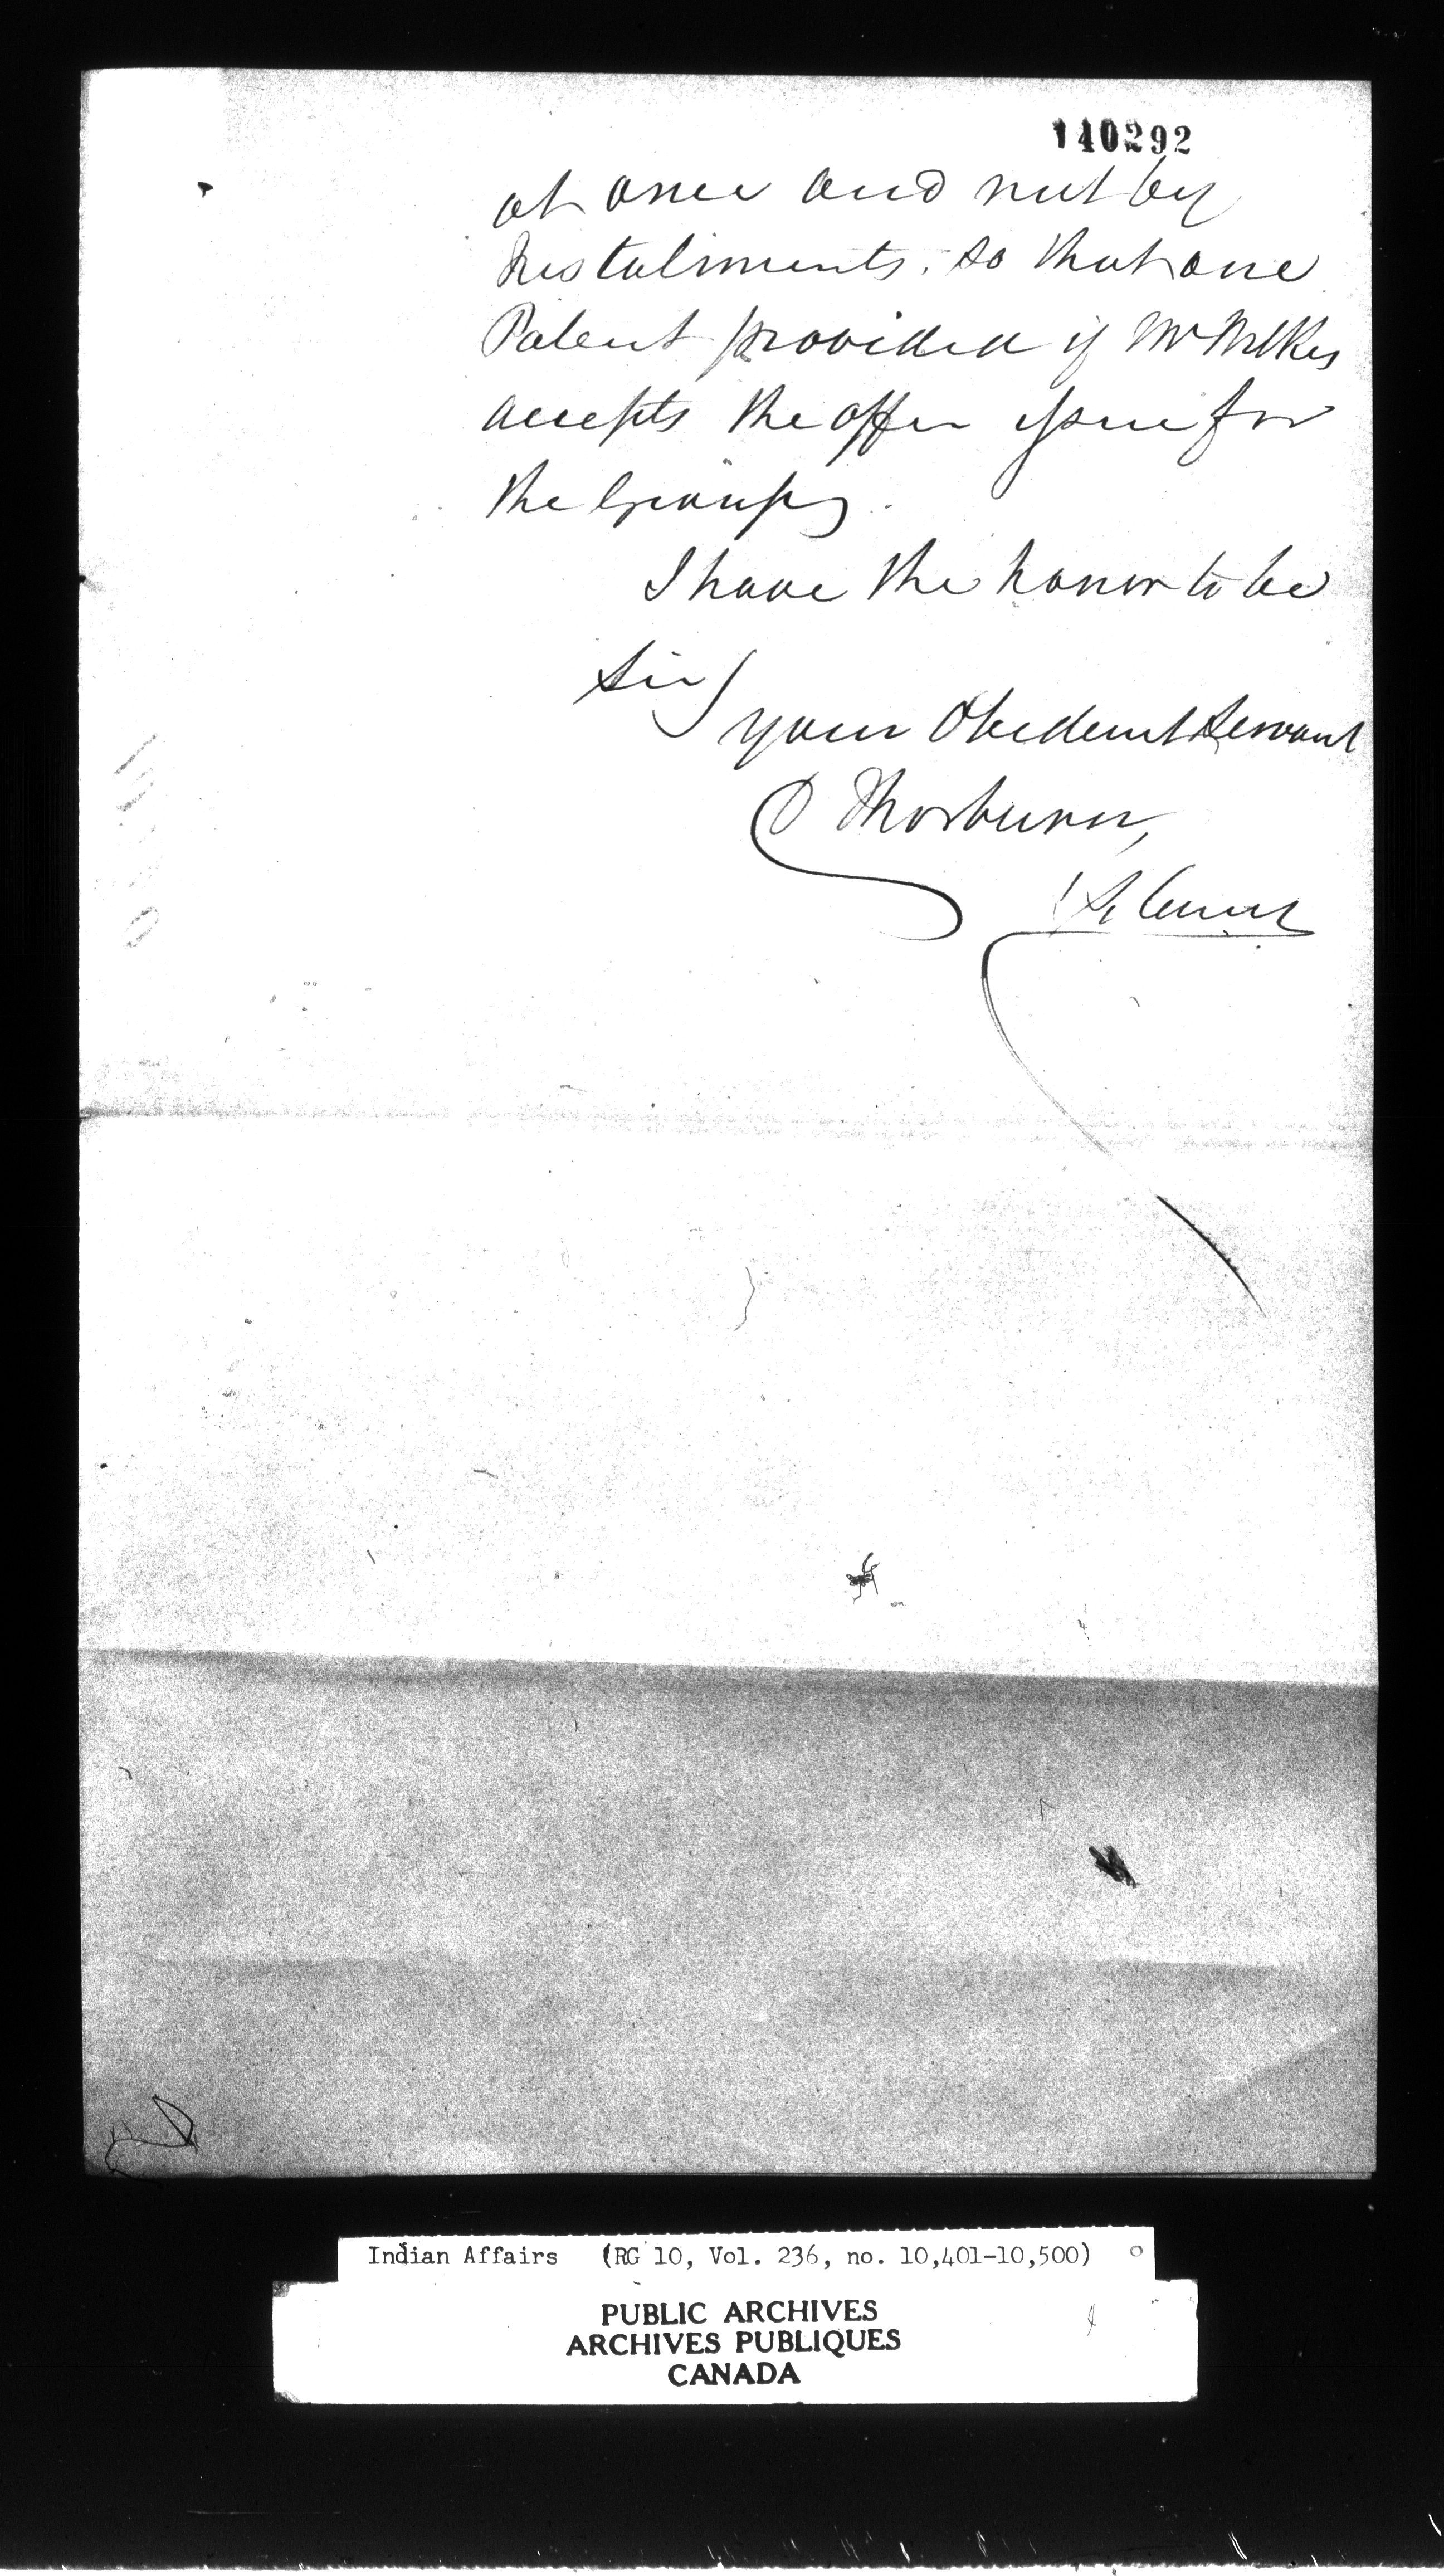 140292
at once and not by
Instalments. so that one
Patent provided if Mr Wilkes
accepts the offer issue for
the Groups.
I have the honor to be
Sir
your Obedient Servant
D Thorburn,
Indian Affairs (RG 10, Vol. 236, no. 10,401-10,500)
PUBLIC ARCHIVES
ARCHIVES PUBLIQUES
CANADA